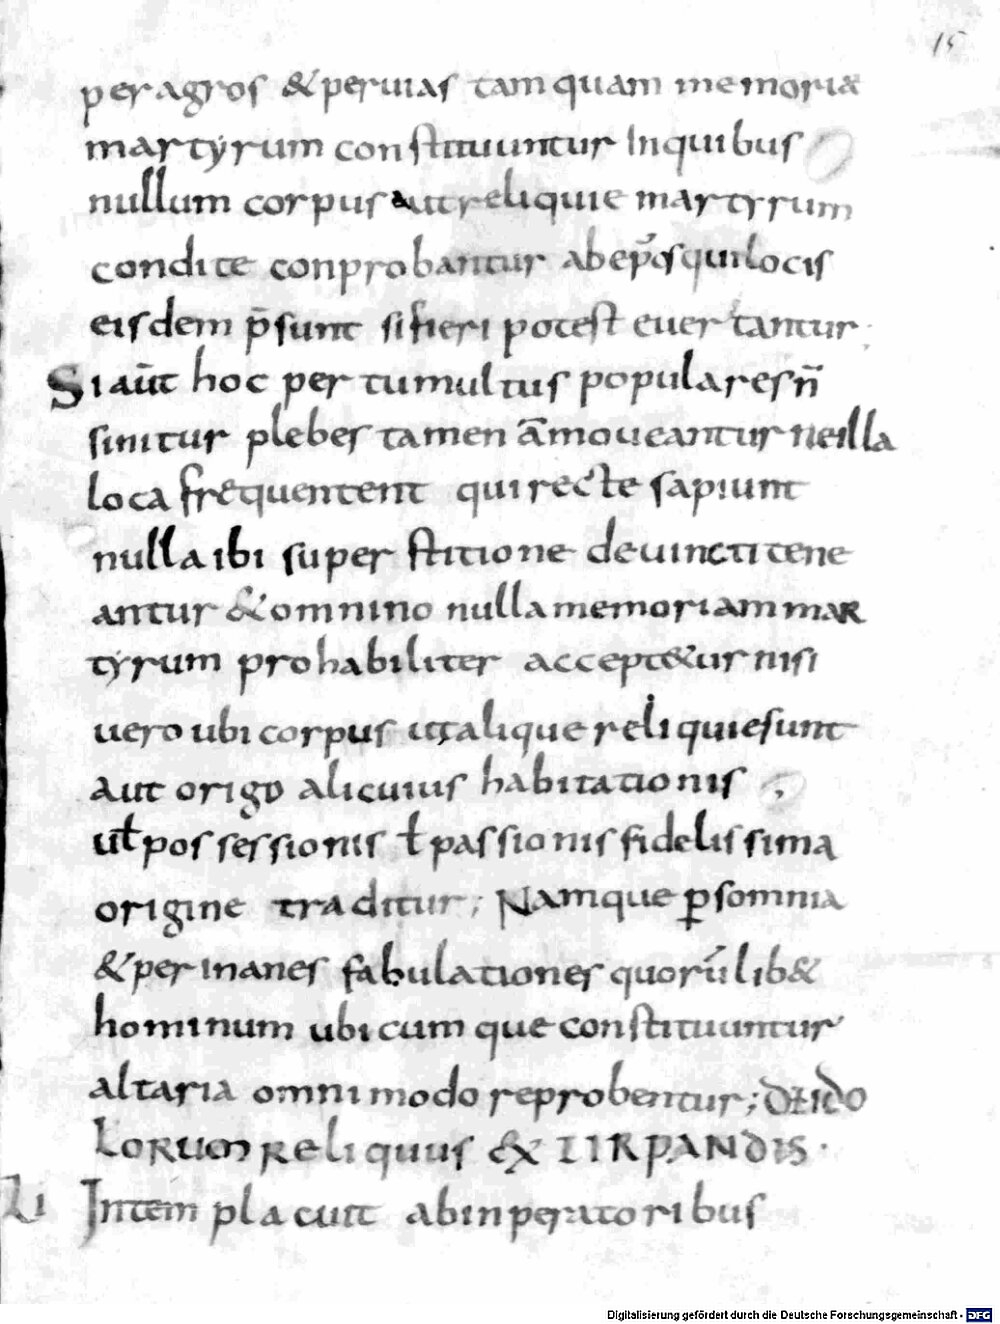 15
per agros & peruias tam quam memoriæ
martyrum constituuntur Inquibus
nullum corpus aut reliquie martyrum
condite conprobantur ab ep̄os qui locis
eisdem p̄sunt si fieri potest euertantur;
Si aūt hoc per tumultus populares n̄
sinitur plebes tamen ām̄oueantur ne illa
loca frequentent qui recte sapiunt
nulla ibi superstitione deuincti tene
antur & omnino nulla memoriam mar
tyrum prohabiliter accept&ur nisi
uero ubi corpus ut alique reliquie sunt
aut origo alicuius habitationis
uł possessionis ł passionis fidelissima
origine traditur; Namque ꝑ somnia
& per inanes fabulationes quorū lib&
hominum ubicumque constituuntur
altaria omnimodo reprobentur; DE IDO
LORUM RELIquiis EX TIRPANDIS.
LI Intem placuit ab inperatoribus
Digitalisierung gefördert durch die Deutsche Forschungsgemeinschaft - DFG